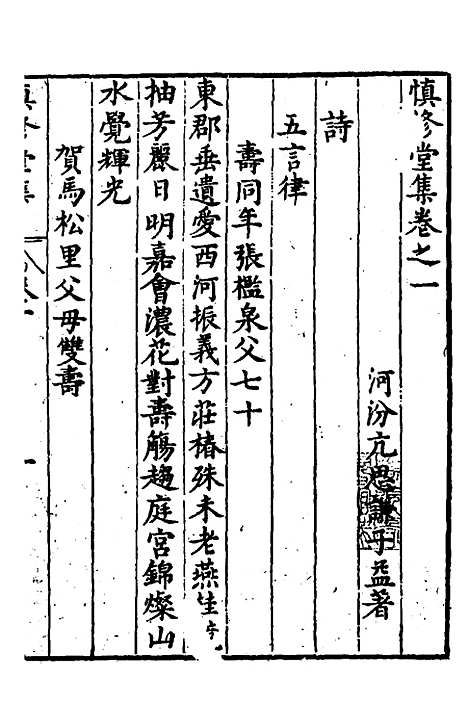 慎修堂集卷之一
河汾亢思謙子益著
詩
五言律
壽同年張檻泉父七十
東郡垂遺愛西河振義方莊椿殊未老燕
抽芳麗日明嘉會濃花對壽觴趨庭宮錦燦山
水覺輝光
賀馬松里父母雙壽